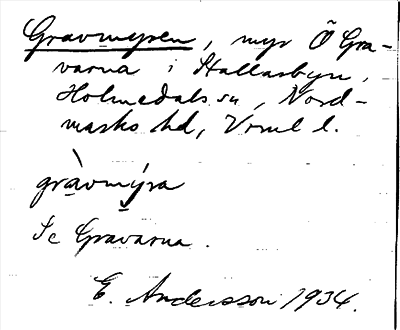 Gravmyren, myr Ö Gra-
varna i Hallasbyn,
Holmedals sn, Nord-
marks hd, Vrml l.
gràvmýra
Se Gravarna.
E. Andersson 1934.